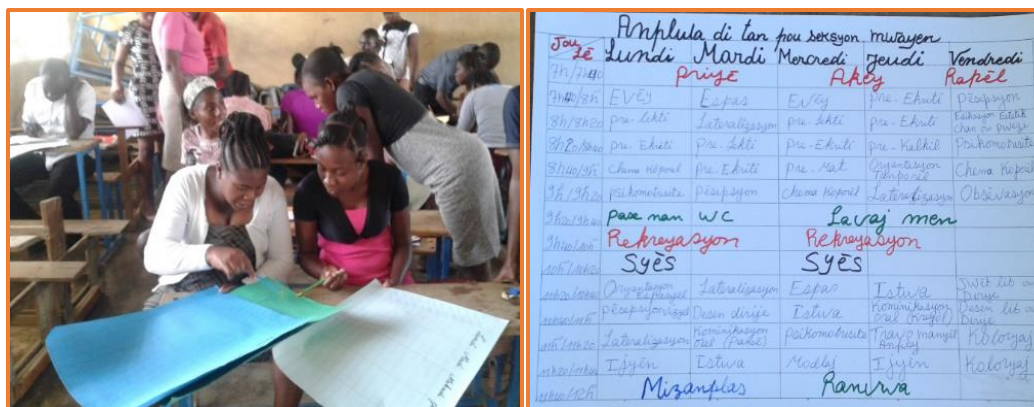 Anplwa di tan pou seksyon mwayen
Jou Lè Lundi Mardi Mercredi Jeudi Vendredi
Priyè Akèy Rapèl
7h40/8h Evèy Espas Evèy Pre-Ekriti Pèsepsyon
8h/8h20 pre-lekti Lateralizasyon pre-lekti pre-Ekriti
8h20/8h40 pre-Ekriti pre-lekti pre-Ekriti pre-Kalkil psikomotrisite
8h40/9h Chema Koporel Pre-Ekriti Pre-Mat Oryantasyon Tanporel Chema Koporel
9h/9h20 psikomotrisite pèsepsyon Chema Koporel Lateralizasyon Obsèvasyon
9h20/9h40 Pase nan WC Lavaj men
9h40/10h Rekreyasyon Rekreyasyon
10h/10h20 Syès Syès
Oryantasyon Lateralizasyon Espas Istwa Jwèt lib ou Dirije
Desen dirije Istwa Kominikasyon oral Desen lib ou Dirije
11h/11h20 Lateralizasyon Kominikasyon oral psikomotrisite Travo manyèl Koloryaj
11h20/11h40 Ijyèn Istwa Modlaj Ijyèn Koloryaj
11h40/12h Mizanplas Ranvwa